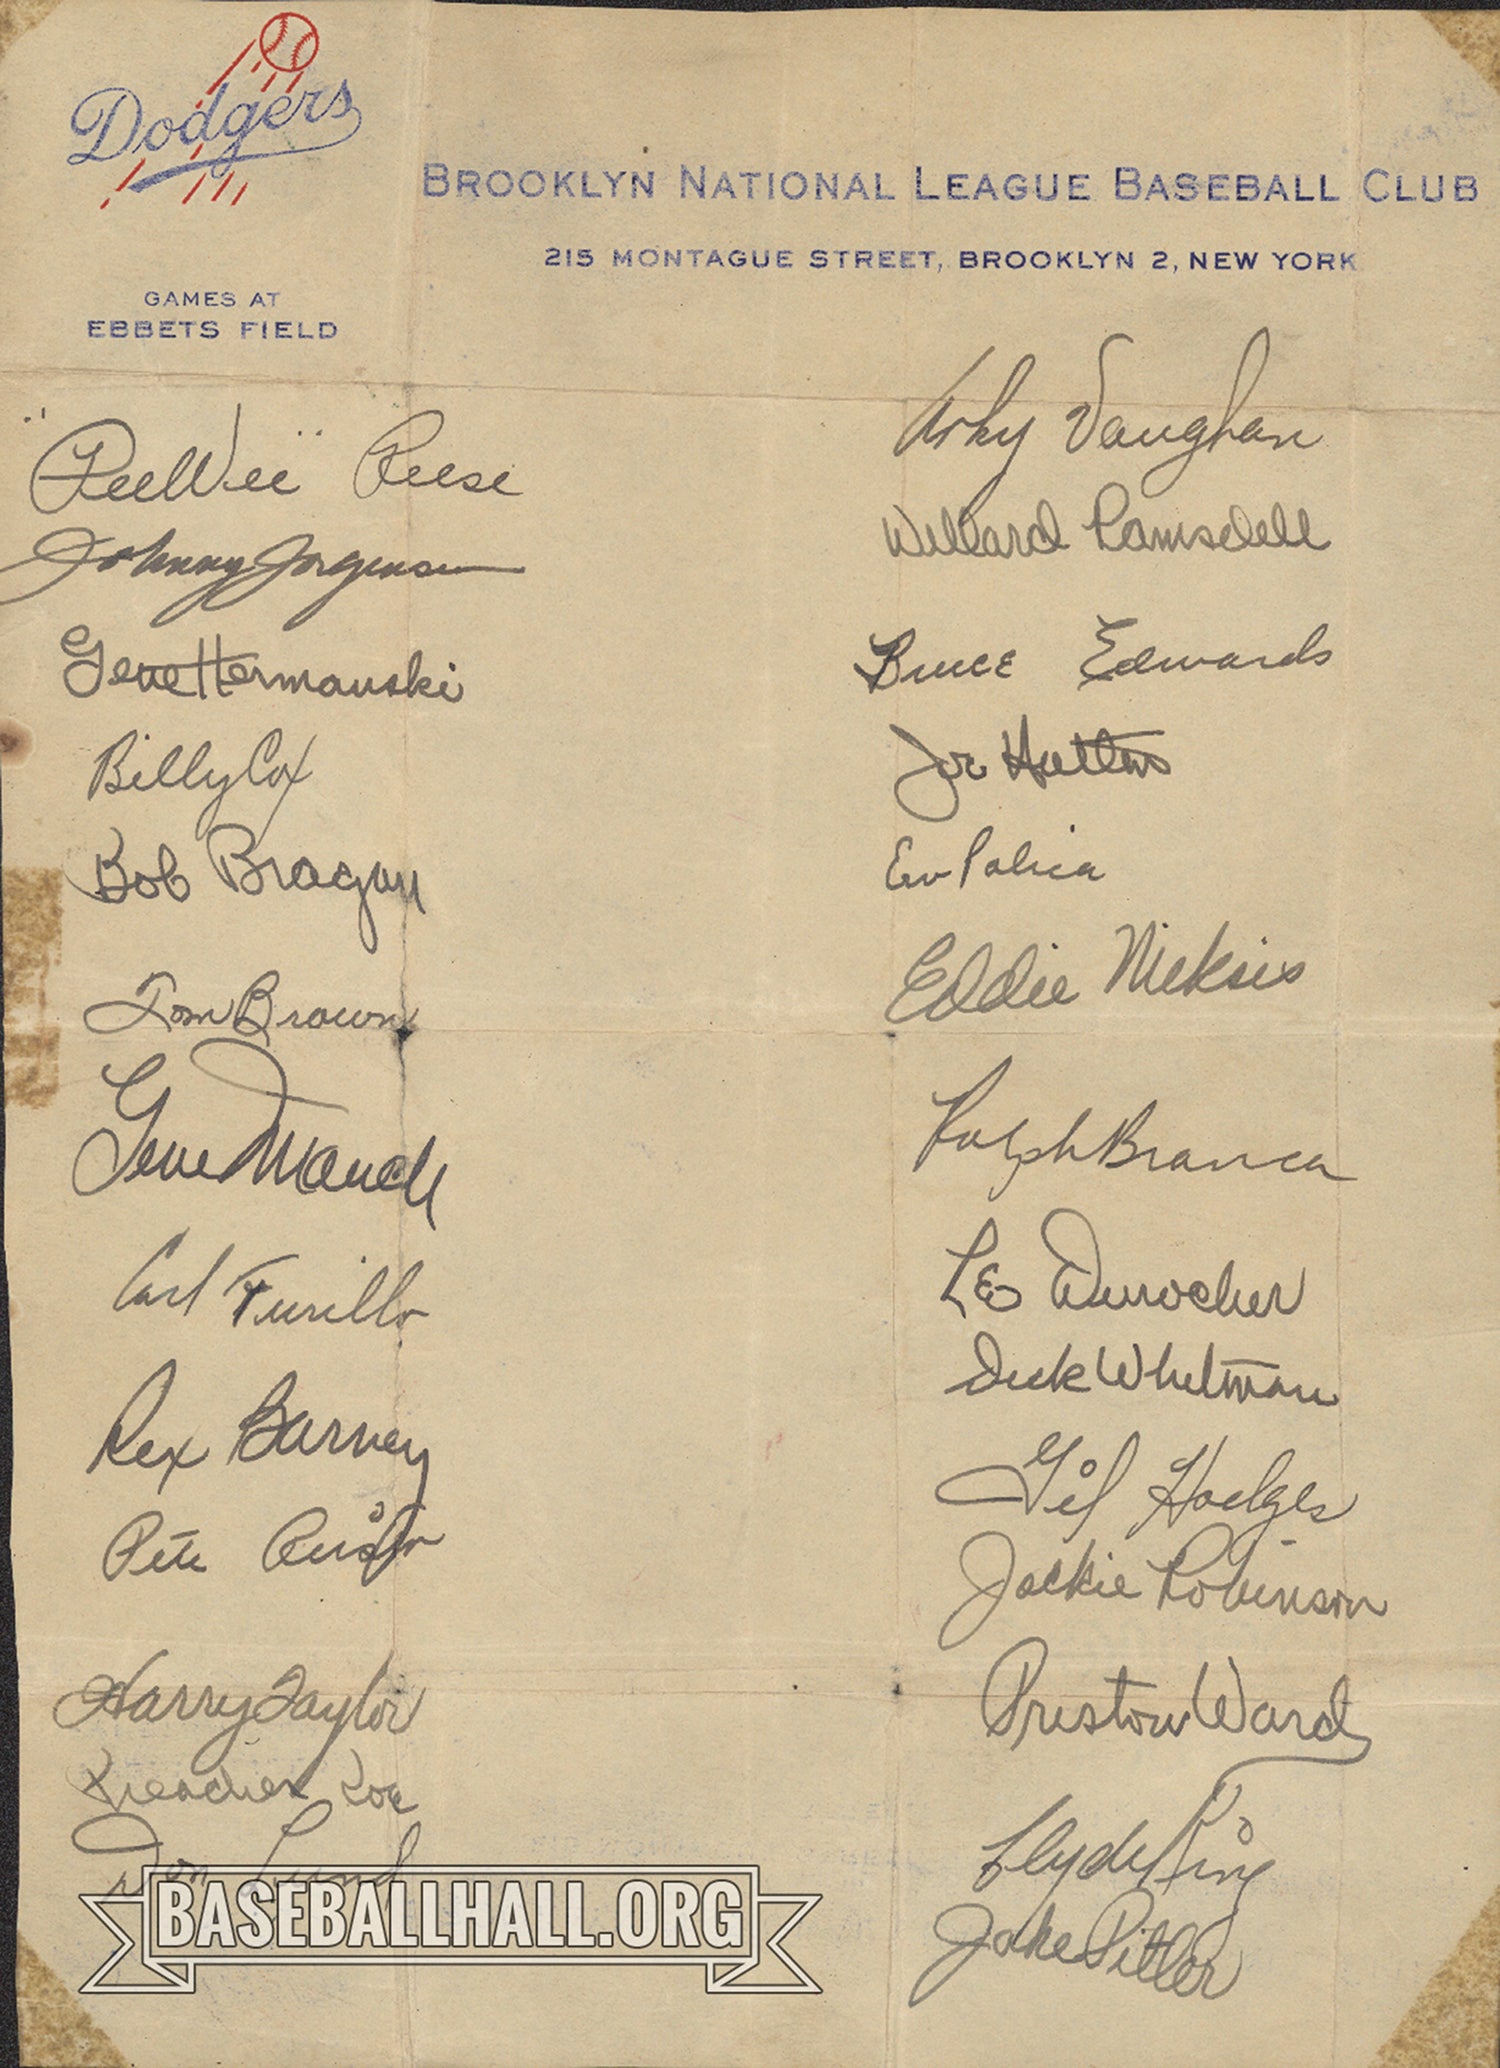 Dodgers
BROOKLYN NATIONAL LEAGUE BASEBALL CLUB
215 MONTAGUE STREET, BROOKLYN 2, NEW YORK
GAMES AT
EBBETS FIELD
"PeeWee" Reese
Johnny Jorgensen
Gene Hermanski
Billy Cox
Bob Bragan
Tom Brown
Gene Mauch
Carl Furillo
Rex Barney
Pete Reiser
Harry Taylor
Preacher Roe
Don Lund
Arky Vaughan
Willard Ramsdell
Bruce Edwards
Joe Hatten
Erv Palica
Eddie Mieksis
Ralph Branca
Leo Durocher
Dick Whitman
Gil Hodges
Jackie Robinson
Preston Ward
Clyde King
Jake Pitler
BASEBALLHALL.ORG